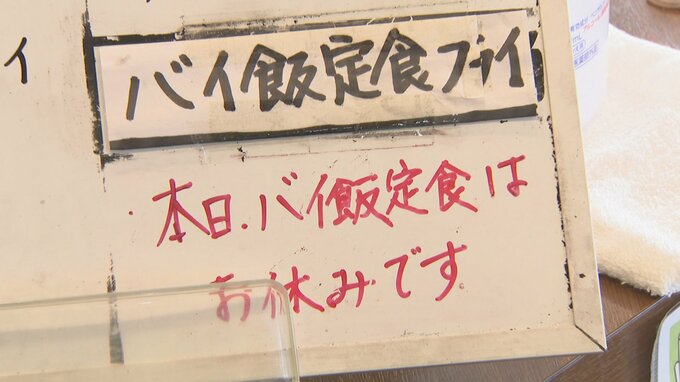 イ
バイ飯定食フライ
本日、バイ飯定食は
お休みです